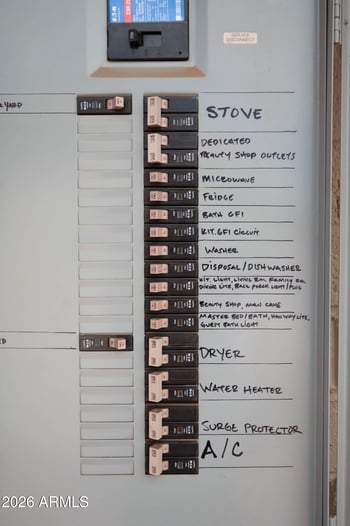 SERVICE
DISCONNECT
YARD
STOVE
DEDICATED
BEAUTY SHOP OUTLETS
MICROWAVE
FRIDGE
BATH GFI
KIT. GFI CIRCUIT
WASHER
DISPOSAL/DISHWASHER
KIT. LIGHT, LIVING RM, FAMILY RM,
DINING LITE, BACK PORCH LIGHT/PLUG
BEAUTY SHOP, MAN CAVE
MASTER BED/BATH, HALLWAY LITE,
GUEST BATH LIGHT
DRYER
WATER HEATER
SURGE PROTECTOR
A/C
2026 ARMLS